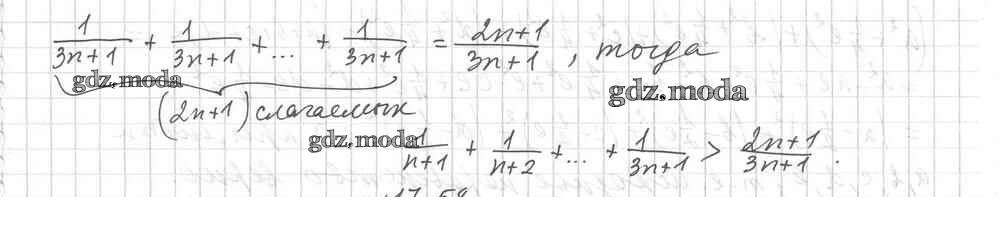 1/(3n+1) + 1/(3n+1) + ... + 1/(3n+1) = (2n+1)/(3n+1), тогда
gdz.moda
gdz.moda
(2n+1) слагаемых
gdz.moda
1/(n+1) + 1/(n+2) + ... + 1/(3n+1) > (2n+1)/(3n+1).